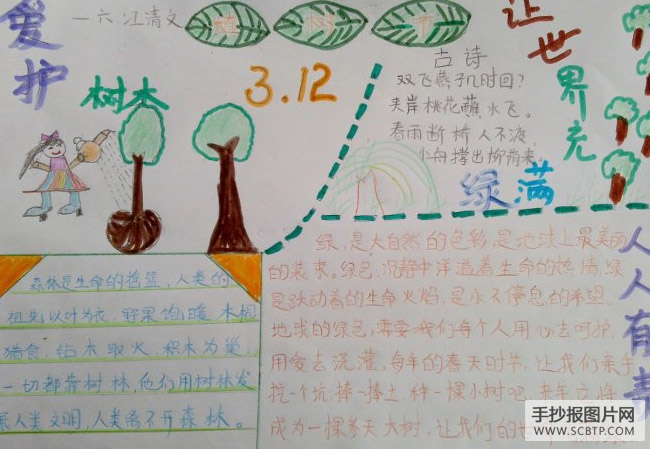 爱护
树木
一六 江清文
植 树 节
3.12
让世界充
绿满
人人有责
古诗
双飞燕子几时回?
夹岸桃花蘸水飞。
春雨断桥人不渡,
小舟撑出柳荫来
森林是生命的摇篮,人类的
祖先以叶为衣,野果饱暖,木棍
猎食,钻木取火,积木为巢,
一切都靠树林,他们用树林发
展人类文明,人类离不开森林。
绿,是大自然的色彩,是地球上最美丽
的装束。绿色,沉静中洋溢着生命的热情,绿
是跃动着的生命火焰,是永不停息的希望。
地球的绿色,需要我们每个人用心去呵护,
用爱去浇灌,每年的春天时节,让我们亲手
挖一个坑,捧一捧土,种一棵小树吧,来年它将
成为一棵参天大树,让我们的世
手抄报图片网
WWW.SCBTP.COM